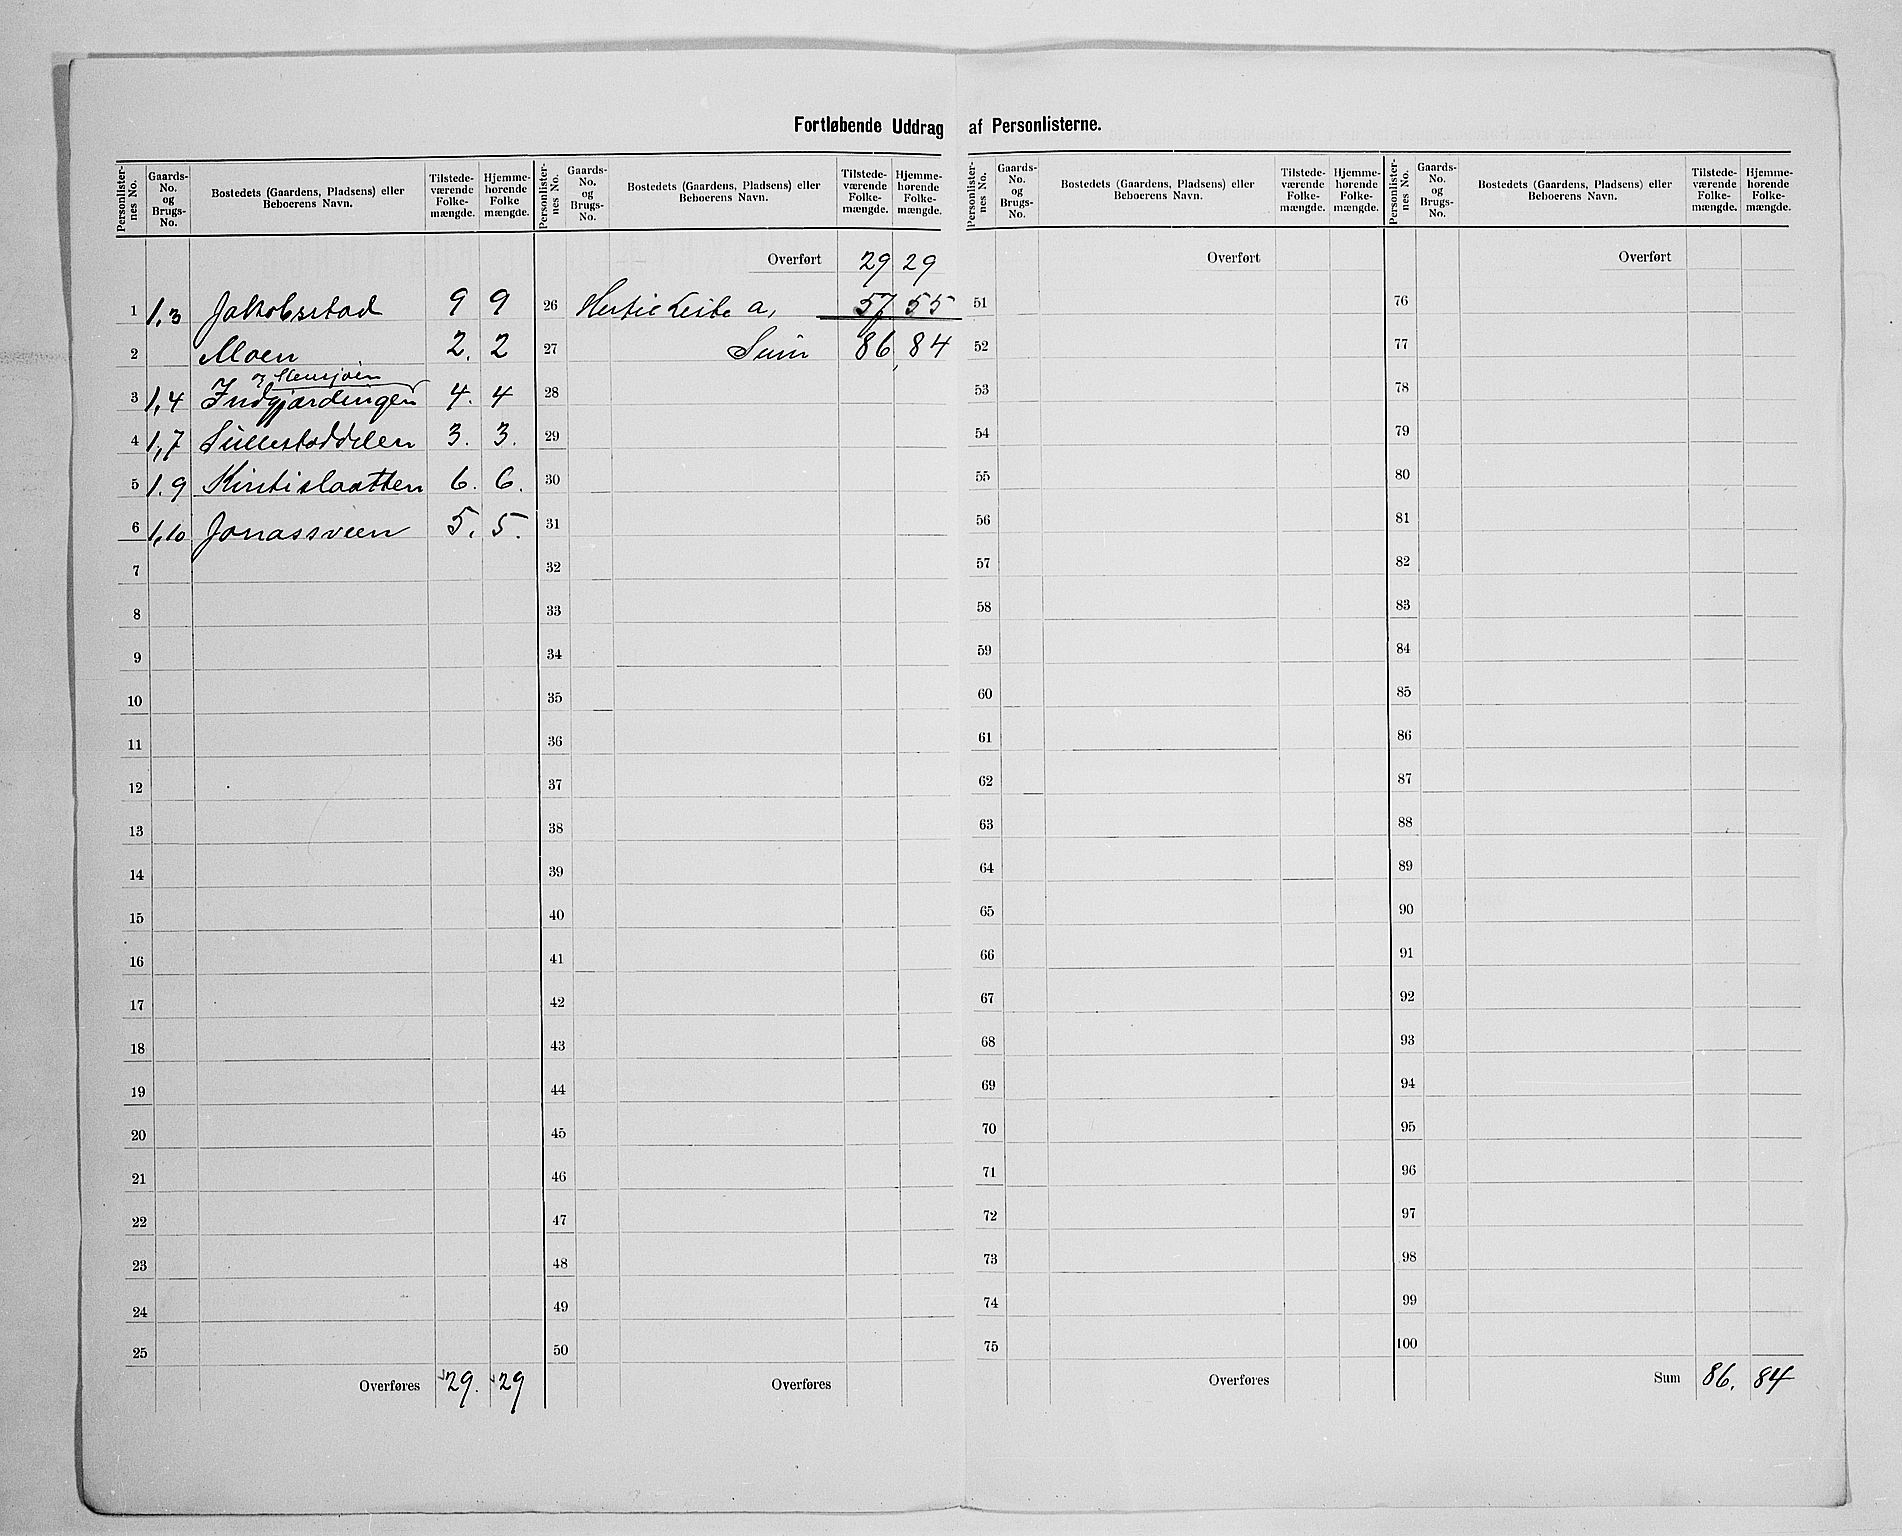 Fortløbende Uddrag af Personlisterne.
Personlister-nes No. Gaards-No. og Brugs-No. Bostedets (Gaardens, Pladsens) eller Beboerens Navn. Tilstede-værende Folke-mængde. Hjemme-hørende Folke mængde.
1 1,3 Jakobsstad 9 9
2 Moen 2. 2
og
3 1,4 Indgjærdingen 4. 4
4 1,7 3. 3.
5 1.9 Kirstislaatten 6. 6.
6 1,10 Jonassveen 5. 5.
7
8
9
10
11
12
13
14
15
16
17
18
19
20
21
22
23
24
25
Overføres 29. 29
Personlister-nes No. Gaards-No. og Brugs-No. Bostedets (Gaardens, Pladsens) eller Beboerens Navn. Tilstede-værende Folke-mængde. Hjemme-hørende Folke-mængde.
Overført 29 29
26 Liste a, 57 55
27 Sum 86 84
28
29
30
31
32
33
34
35
36
37
38
39
40
41
42
43
44
45
46
47
48
49
50
Overføres
Personlister-nes No. Gaards-No. og Brugs-No. Bostedets (Gaardens, Pladsens) eller Beboerens Navn. Tilstede-værende Folke-mængde. Hjemme-hørende Folke-mængde.
Overført
51
52
53
54
55
56
57
58
59
60
61
62
63
64
65
66
67
68
69
70
71
72
73
74
75
Overføres
Personlister-nes No. Gaards-No. og Brugs-No. Bostedets (Gaardens, Pladsens) eller Beboerens Navn. Tilstede-værende Folke-mængde. Hjemme-hørende Folke-mængde.
Overført
76
77
78
79
80
81
82
83
84
85
86
87
88
89
90
91
92
93
94
95
96
97
98
99
100
Sum 86. 84